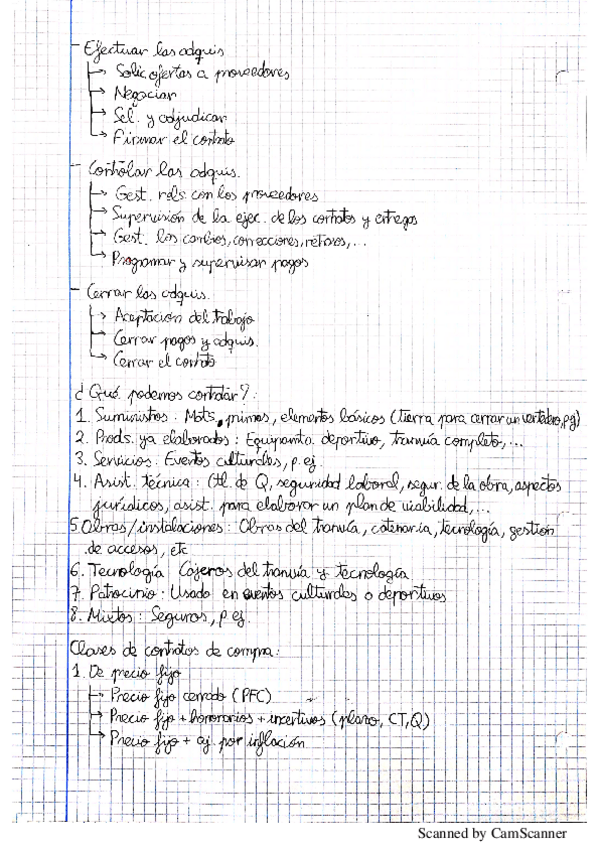 - Efectuar las adquis
→ Solic. ofertas a proveedores
→ Negociar
→ Sel. y adjudicar
→ Firmar el contrato
- Controlar las adquis.
→ Gest. rels. con los proveedores
→ Supervisión de la ejec. de los contratos y entregas
→ Gest. los cambios, correcciones, retrasos, ...
→ Programar y supervisar pagos
- Cerrar las adquis.
→ Aceptación del trabajo
→ Cerrar pagos y adquis.
→ Cerrar el contrato
¿Qué podemos contratar?:
1. Suministros: Mats. primas, elementos básicos (tierra para cerrar un vertedero, p.ej)
2. Prods. ya elaborados: Equipamto. deportivo, tranvía completo, ...
3. Servicios: Eventos culturales, p. ej.
4. Asist. técnica: Ctl. de Q, seguridad laboral, segur. de la obra, aspectos
jurídicos, asist. para elaborar un plan de viabilidad, ...
5. Obras/instalaciones: Obras del tranvía, catenaria, tecnología, gestión
de accesos, etc
6. Tecnología: Cajeros del tranvía y tecnología
7. Patrocinio: Usado en eventos culturales o deportivos
8. Mixtos: Seguros, p. ej.
Clases de contratos de compra:
1. De precio fijo
→ Precio fijo cerrado (PFC)
→ Precio fijo + honorarios + incentivos (plazo, CT, Q)
→ Precio fijo + aj. por inflación
Scanned by CamScanner